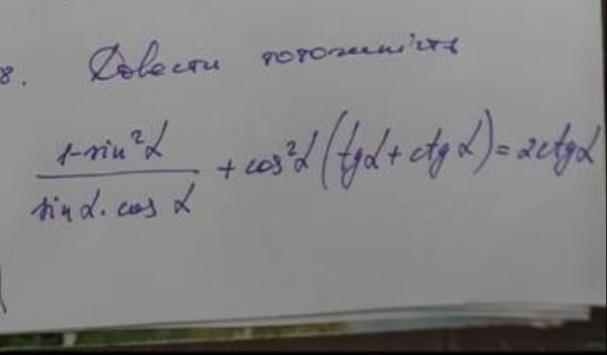 8. Довести тотожність
1-sin²α / sin α · cos α + cos²α (tgα + ctg α) = 2ctgα